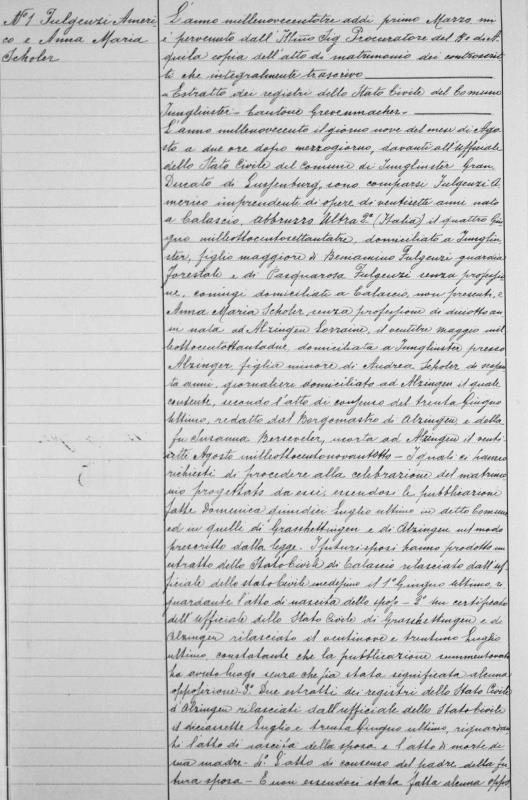 N°1 Fulgenzi Ameri
co e Anna Maria
Scholer
L'anno millenovecentotre addì primo Marzo mi
è pervenuto dall'Ill.mo Sig Procuratore del Re di A
quila copia dell'atto di matrimonio dei controscrit
ti che integralmente trascrivo
"Estratto dei registri dello Stato Civile del Comune
Junglinster - Cantone Grevenmacher.
L'anno millenovecento il giorno nove del mese di Ago
sto a due ore dopo mezzogiorno, davanti all'Uffiziale
dello Stato Civile del Comune di Junglinster Gran
Ducato di Lussenburg, sono comparsi Fulgenzi A
merico imprendente di opere di ventisette anni nato
a Calascio, Abbruzzo Ultra 2° (Italia) il quattro Giu
gno milleottocentosettantatre, domiciliato a Junglin
ster, figlio maggiore di Beniamino Fulgenzi guardia
forestale e di Pasquarosa Fulgenzi senza professio
ne, coniugi domiciliati a Calascio, non presenti, e
Anna Maria Scholer, senza professione di diciotto an
ni nata ad Alzingen Lorraine, il ventitre maggio mil
leottocentottantadue, domiciliata a Junglinster presso
Alzinger, figlia minore di Andrea Scholer di sessan
ta anni, giornaliere domiciliato ad Alzingen il quale
consente, secondo l'atto di consenso del trenta Giugno
ultimo, redatto dal Borgomastro di Alzingen e della
fu Susanna Berseveler, morta ad Alzingen il venti
sette Agosto milleottocentonovantotto - I quali ci hanno
richiesti di procedere alla celebrazione del matrimo
nio progettato da essi essendosi le pubblicazione
fatte Domenica quindici Luglio ultimo in detto Comune
ed in quelle di Grasshettingen e di Alzingen nel modo
prescritto dalla legge. I futuri sposi hanno prodotto un
estratto dello Stato Civile di Calascio rilasciato dall'uf
ficiale dello stato Civile medesimo il 1° Giugno ultimo, ri
guardante l'atto di nascita dello sposo - 2° Un certificato
dell'Ufficiale dello Stato Civile di Grasshettingen e di
Alzingen rilasciato il ventinove e trentuno Luglio
ultimo, constatante che la pubblicazione summentovata
ha avuto luogo senza che sia stata significata alcuna
opposizione - 3° Due estratti dei registri dello Stato Civile
d'Alzingen rilasciati dall'ufficiale dello Stato Civile
il diciassette Luglio e trenta Giugno ultimo, riguardan
ti l'atto di nascita della sposa e l'atto di morte di
sua madre - 4° L'atto di consenso del padre della fu
tura sposa - E non essendoci stata fatta alcuna oppo